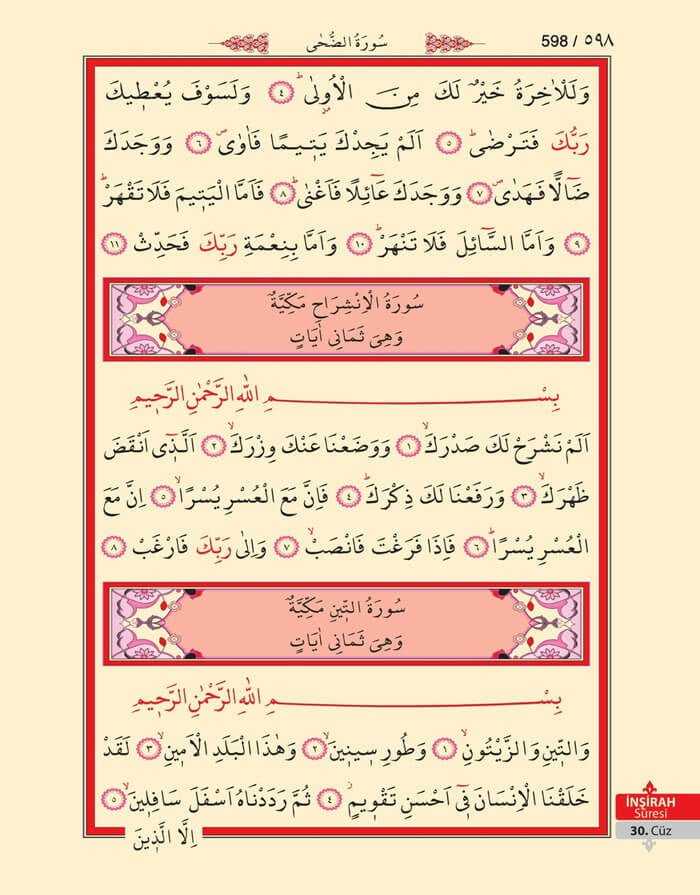 سُورَةُ الضُّحٰى
598 / ٥٩٨
وَلَلْاٰخِرَةُ خَيْرٌ لَكَ مِنَ الْاُولٰىۜ ﴿٤﴾ وَلَسَوْفَ يُعْط۪يكَ
رَبُّكَ فَتَرْضٰىۜ ﴿٥﴾ اَلَمْ يَجِدْكَ يَت۪يمًا فَاٰوٰىۖ ﴿٦﴾ وَوَجَدَكَ
ضَٓالًّا فَهَدٰىۖ ﴿٧﴾ وَوَجَدَكَ عَٓائِلًا فَاَغْنٰىۜ ﴿٨﴾ فَاَمَّا الْيَت۪يمَ فَلَا تَقْهَرْۜ
﴿٩﴾ وَاَمَّا السَّٓائِلَ فَلَا تَنْهَرْۜ ﴿١٠﴾ وَاَمَّا بِنِعْمَةِ رَبِّكَ فَحَدِّثْ ﴿١١﴾
سُورَةُ الْاِنْشِرَاحِ مَكِّيَّةٌ
وَهِىَ ثَمَانِى اٰيَاتٍ
بِسْمِ اللّٰهِ الرَّحْمٰنِ الرَّح۪يمِ
اَلَمْ نَشْرَحْ لَكَ صَدْرَكَۙ ﴿١﴾ وَوَضَعْنَا عَنْكَ وِزْرَكَۙ ﴿٢﴾ اَلَّذ۪ٓى اَنْقَضَ
ظَهْرَكَۙ ﴿٣﴾ وَرَفَعْنَا لَكَ ذِكْرَكَۜ ﴿٤﴾ فَاِنَّ مَعَ الْعُسْرِ يُسْرًاۙ ﴿٥﴾ اِنَّ مَعَ
الْعُسْرِ يُسْرًاۜ ﴿٦﴾ فَاِذَا فَرَغْتَ فَانْصَبْۙ ﴿٧﴾ وَاِلٰى رَبِّكَ فَارْغَبْ ﴿٨﴾
سُورَةُ التّ۪ينِ مَكِّيَّةٌ
وَهِىَ ثَمَانِى اٰيَاتٍ
بِسْمِ اللّٰهِ الرَّحْمٰنِ الرَّح۪يمِ
وَالتّ۪ينِ وَالزَّيْتُونِۙ ﴿١﴾ وَطُورِ س۪ين۪ينَۙ ﴿٢﴾ وَهٰذَا الْبَلَدِ الْاَم۪ينِۙ ﴿٣﴾ لَقَدْ
خَلَقْنَا الْاِنْسَانَ ف۪ٓى اَحْسَنِ تَقْو۪يمٍۘ ﴿٤﴾ ثُمَّ رَدَدْنَاهُ اَسْفَلَ سَافِل۪ينَۙ ﴿٥﴾
اِلَّا الَّذ۪ينَ
İNŞİRAH
Sûresi
30. Cüz